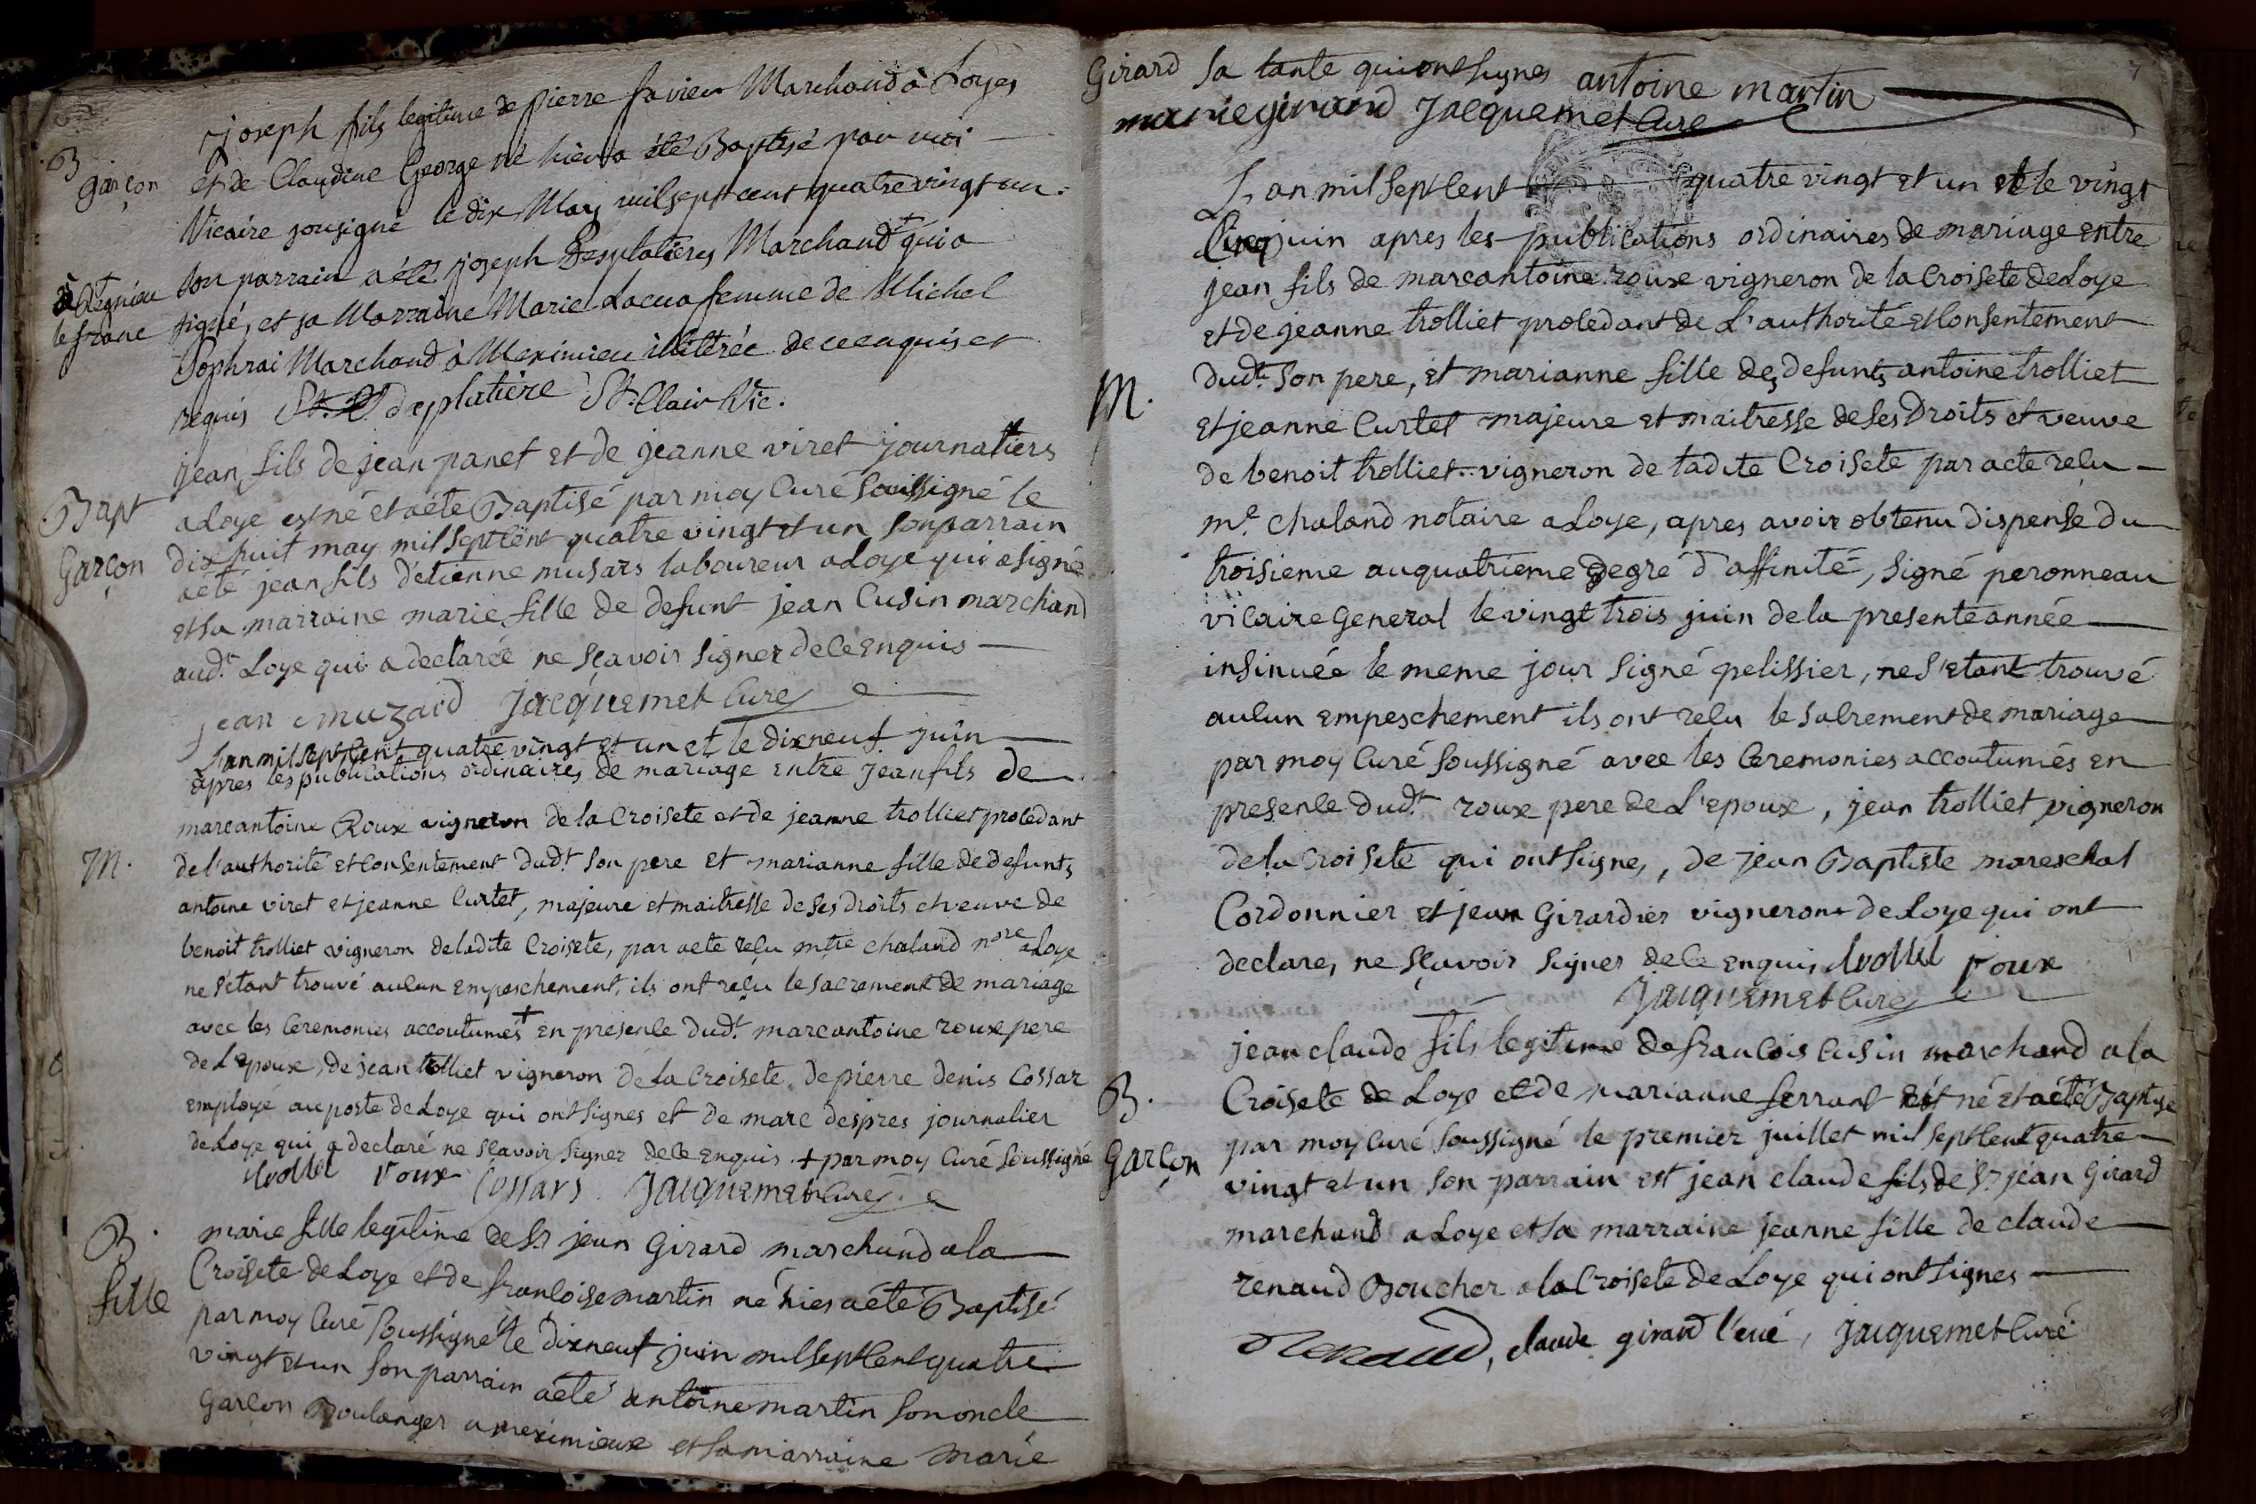 joseph fils legitime de pierre favier Marchand à Loyes
B
garçon
et de Claudine George né hier a été Baptisé par moi
Vicaire sousigné le dix May mil sept cent quatre vingt un.
Son parrain a été joseph Desplatieres Marchand + qui a
à Regnieu
le franc
signé, et sa Marraine Marie Lacua femme de Michel
Sophrai Marchand à Meximieu illiterée de ce enquis et
requis desplatiere St. Clair Vic.
jean fils de jean panet et de jeanne viret journaliers
Bapt
Garçon
a Loye est né et a été Baptisé par moy Curé Soussigné le
dix huit may mil sept cent quatre vingt et un son parrain
a été jean fils d'etienne musars laboureur a Loye qui a signé
et sa marraine marie fille de defunt jean Cusin marchand
aud.t Loye qui a declarée ne sçavoir signer de ce enquis
jean muzard jacquemet Curé
L'an mil sept cent quatre vingt et un et le dixneuf juin
apres les publications ordinaires de mariage entre jean fils de
marcantoine Roux vigneron de la Croisete et de jeanne trolliet procedant
M.
de l'authorité et consentement dud.t son pere et marianne fille de defunts
antoine viret et jeanne Curtet, majeure et maitresse de ses droits et veuve de
benoit trolliet vigneron de ladite Croisete, par acte reçu mtre chaland nore a Loye
ne s'etant trouvé aucun empeschement, ils ont reçu le sacrement de mariage
avec les ceremonies accoutumes + en presence dud.t marcantoine roux pere
de l'epoux, de jean trolliet vigneron de la Croisete, de pierre denis Cossar
employé au poste de Loye qui ont signes et de marc despres journalier
de Loye qui a declaré ne scavoir signer de ce enquis. + par moy Curé soussigné
trolliet roux Cossars jacquemet Curé
B.
fille
marie fille legitime de Sr jean Girard marchand a la
Croisete de Loye et de francoise martin né hier a été Baptisé
par moy Curé soussigné le dixneuf juin mil sept cent quatre
vingt et un son parrain a été antoine martin son oncle
Garçon Boulanger a meximieux et sa marraine marie
Girard sa tante qui ont signes antoine martin
marie girard jacquemet Curé
7
L'an mil sept cent quatre vingt et un et le vingt
Cinq juin apres les publications ordinaires de mariage entre
jean fils de marcantoine roux vigneron de la Croisete de Loye
et de jeanne trolliet procedant de L'authorité et Consentement
M.
dud.t son pere, et marianne fille des defunts antoine trolliet
et jeanne Curtet majeure et maitresse de ses droits et veuve
de benoit trolliet vigneron de ladite Croisete par acte reçu
m.e chaland notaire a Loye, apres avoir obtenu dispense du
troisieme au quatrieme degré d'affinité, signé peronneau
vicaire General le vingt trois juin de la presente année
insinuée le meme jour signé pelissier, ne s'etant trouvé
aucun empeschement ils ont reçu le sacrement de mariage
par moy Curé soussigné avec les ceremonies accoutumés en
presence dud.t roux pere de L'epoux, jean trolliet vigneron
de la Croisete qui ont signes, de jean Baptiste mareschal
Cordonnier et jean Girardier vigneron de Loye qui ont
declares, ne sçavoir signer de ce enquis trolliet roux
jacquemet Curé
jean claude fils legitime de francois Cusin marchand a la
B.
Garçon
Croisete de Loye et de marianne ferrant est né et a été Baptise
par moy Curé soussigné le premier juillet mil sept cent quatre
vingt et un son parrain est jean claude fils de Sr jean Girard
marchand a Loye et sa marraine jeanne fille de claude
renaud Boucher a la Croisete de Loye qui ont signes
Renaud, claude girard jacquemet Curé